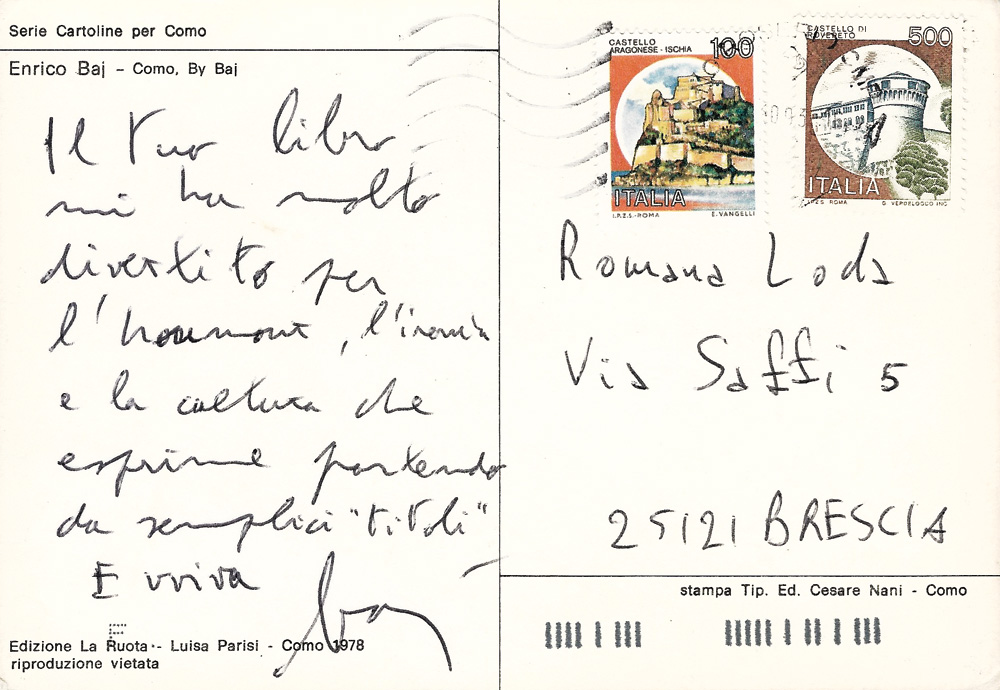 Serie Cartoline per Como
Enrico Baj – Como, By Baj
Il tuo libro
mi ha molto
divertito per
l'houmour, l'ironia
e la cultura che
esprime partendo
da semplici "titoli"
E vviva
Baj
Edizione La Ruota - Luisa Parisi - Como 1978
riproduzione vietata
CASTELLO
ARAGONESE - ISCHIA
100
ITALIA
I.P.Z.S. - ROMA E. VANGELLI
CASTELLO DI
ROVERETO
500
ITALIA
I.P.Z.S. ROMA
Romana Loda
Via Saffi 5
25121 BRESCIA
stampa Tip. Ed. Cesare Nani - Como